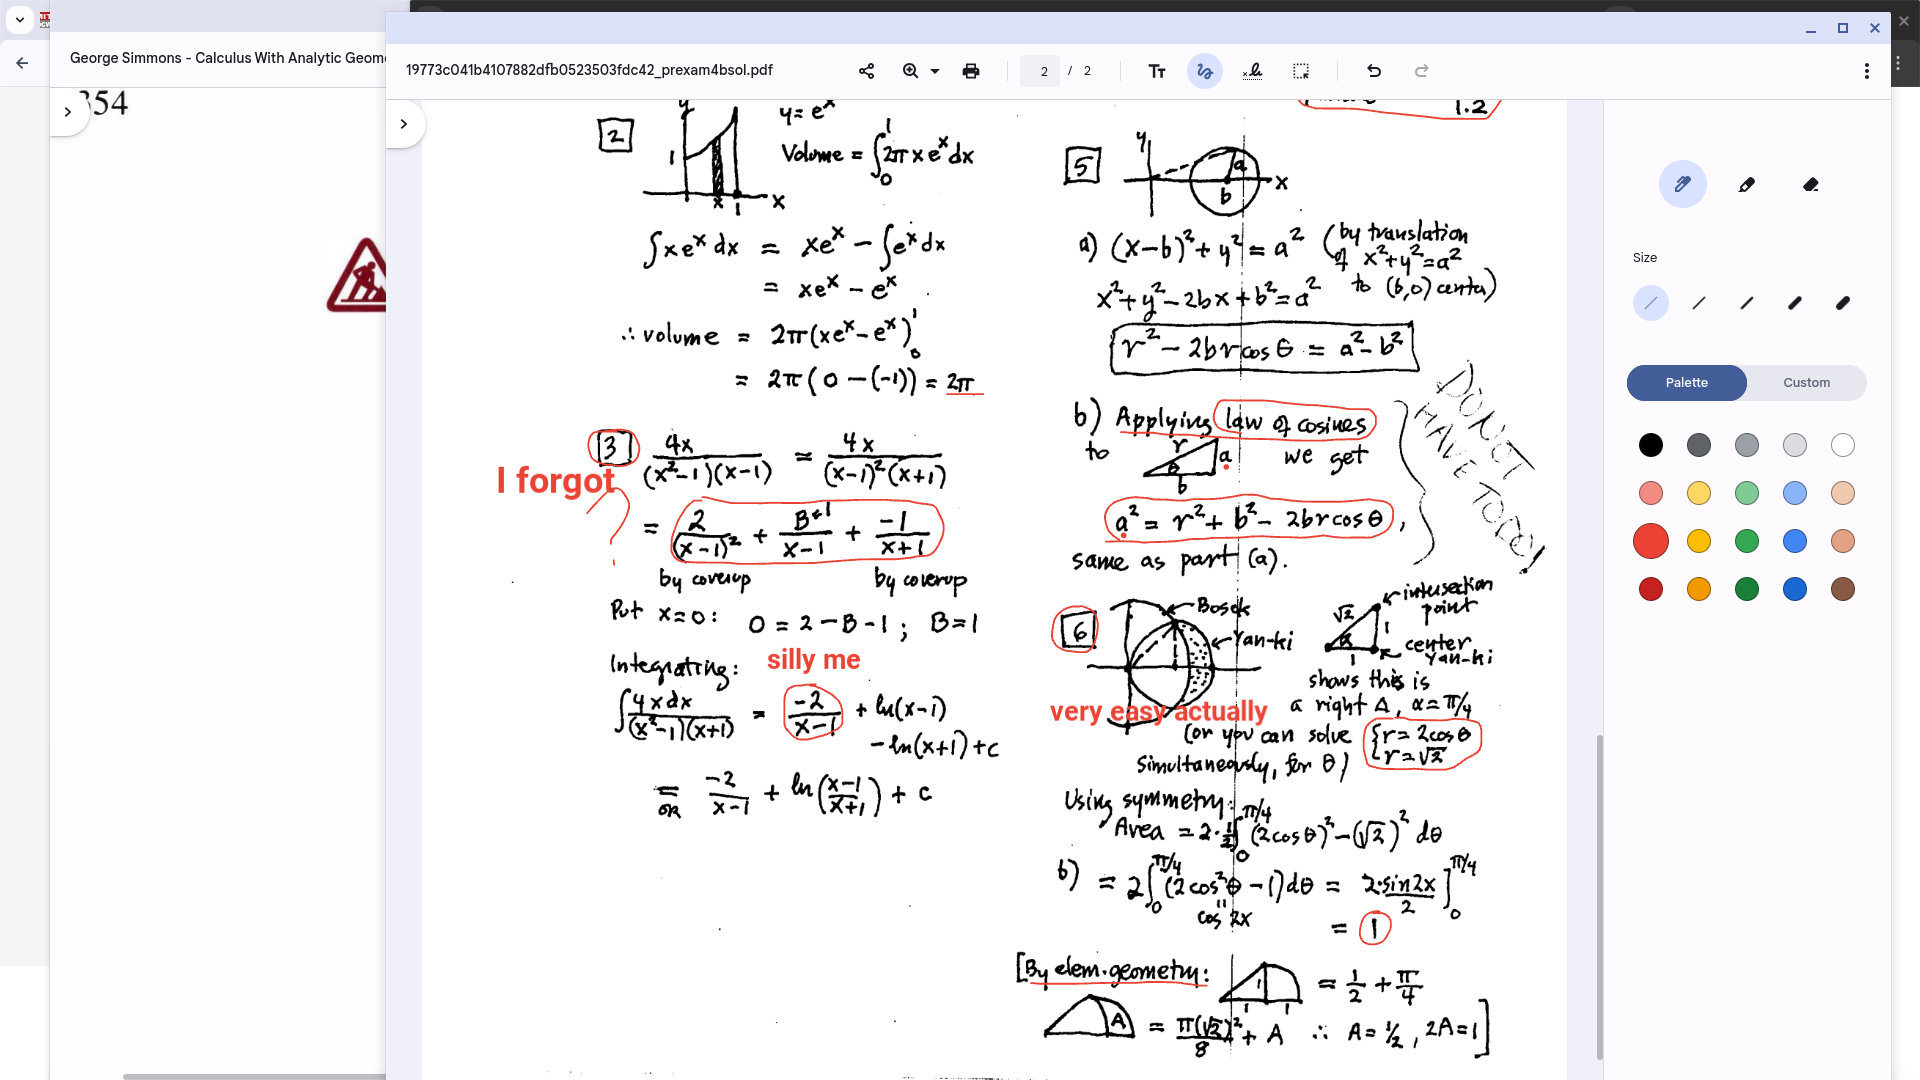 George Simmons - Calculus With Analytic Geome
354
19773c041b4107882dfb0523503fdc42_prexam4bsol.pdf
2 / 2
2
y
1
x
1
x
y = e^x
Volume = ∫_0^1 2π x e^x dx
∫ x e^x dx = xe^x − ∫e^x dx
= xe^x − e^x
∴ volume = 2π(xe^x − e^x)_0^1
= 2π(0 − (−1)) = 2π
3
4x/((x²−1)(x−1)) = 4x/((x−1)²(x+1))
I forgot
?
= 2/(x−1)² + B=1/(x−1) + −1/(x+1)
by coverup by coverup
Put x=0: 0 = 2 − B − 1 ; B = 1
silly me
Integrating:
∫ 4x dx/((x²−1)(x+1)) = −2/(x−1) + ln(x−1)
− ln(x+1) + c
= or −2/(x−1) + ln((x−1)/(x+1)) + c
1.2
5
y
a
b
x
a) (x−b)² + y² = a² (by translation
of x²+y²=a²
to (b,0) center)
x² + y² − 2bx + b² = a²
r² − 2br cos θ = a² − b²
b) Applying law of cosines
to r θ a b we get
a² = r² + b² − 2br cos θ,
same as part (a).
DON'T
HAVE TO DO!
6
Bosok
Yan-ki
√2
α
1
1
intersection
point
center
Yan-ki
shows this is
very easy actually
a right Δ, α = π/4
(or you can solve {r = 2cos θ
r = √2
simultaneously, for θ)
Using symmetry:
Area = 2·1/2 ∫_0^π/4 (2cos θ)² − (√2)² dθ
b) = 2∫_0^π/4 (2cos²θ − 1)dθ = 2·sin2x/2 ]_0^π/4
"
cos 2x
= 1
[By elem. geometry: 1 1 1 = 1/2 + π/4
A = π(√2)²/8 + A ∴ A = 1/2, 2A = 1]
Size
Palette
Custom